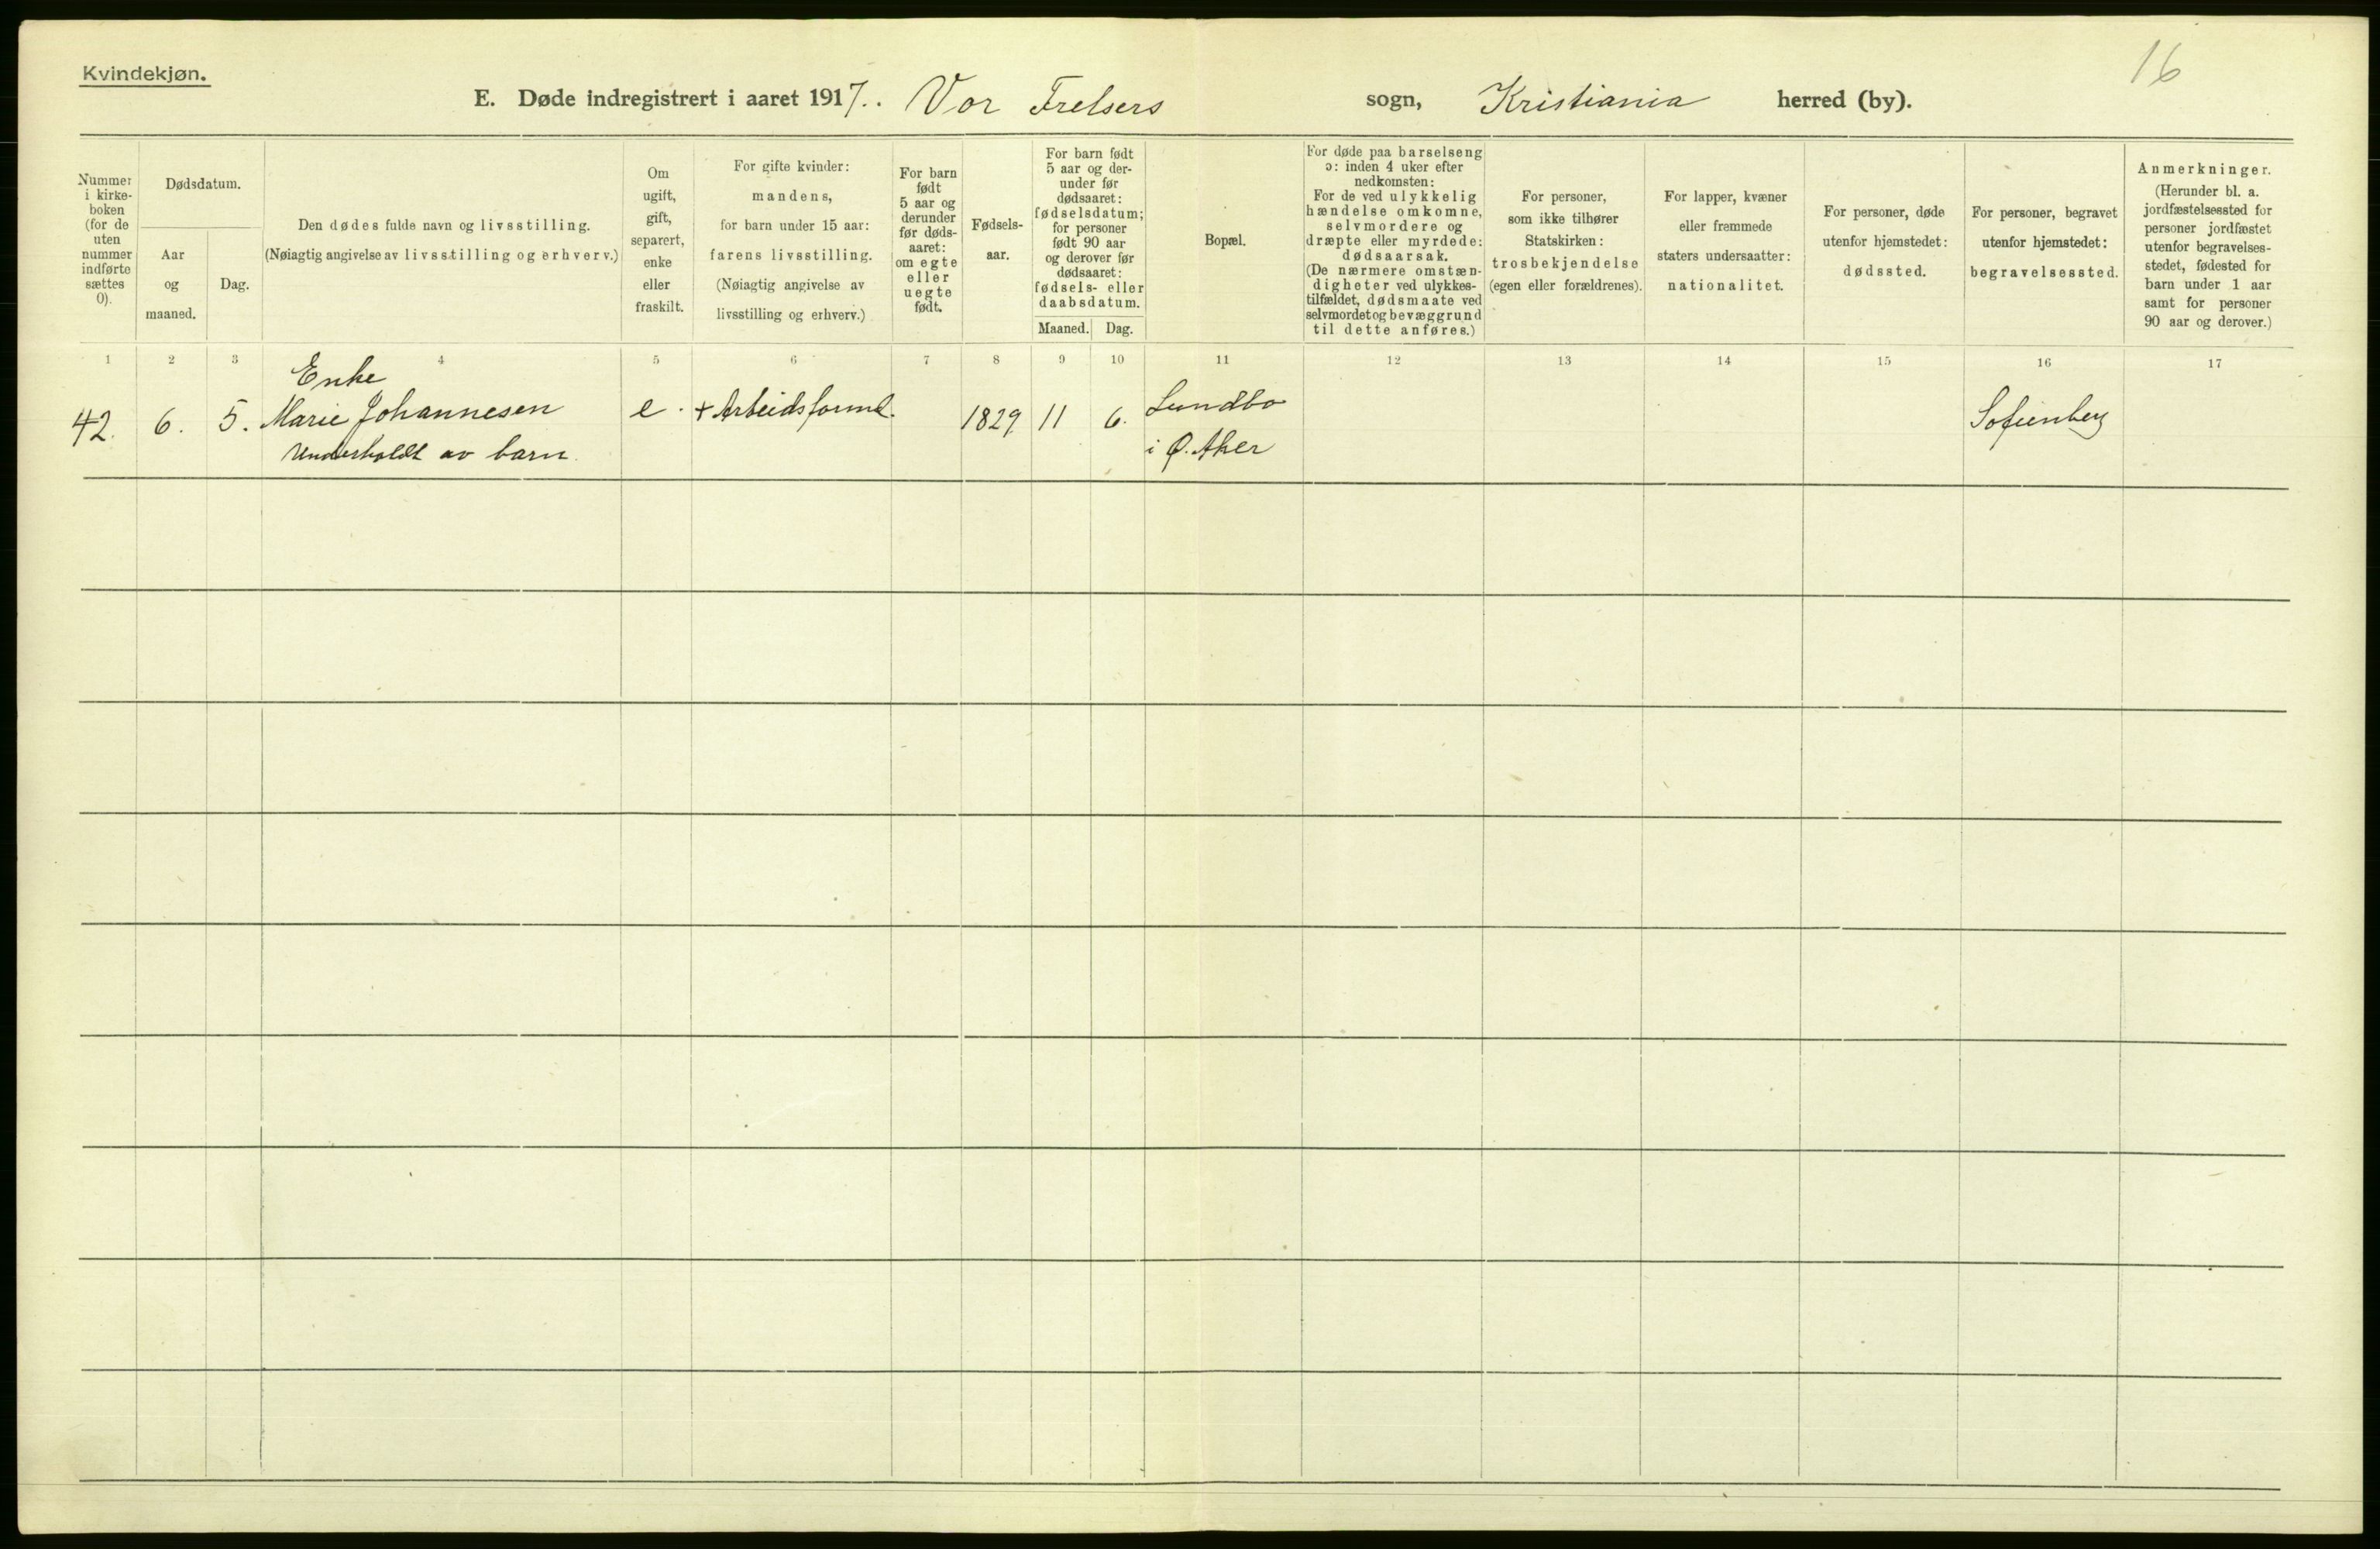 16
Kvindekjøn.
E. Døde indregistrert i aaret 1917.. Vor Frelsers sogn, Kristiania herred (by).
Nummer
i kirke-
boken
(for de
uten
nummer
indførte
sættes
0).
Dødsdatum.
Aar
og
maaned.
Dag.
Den dødes fulde navn og livsstilling.
(Nøiagtig angivelse av livsstilling og erhverv.)
Om
ugift,
gift,
separert,
enke
eller
fraskilt.
For gifte kvinder:
mandens,
for barn under 15 aar:
farens livsstilling.
(Nøiagtig angivelse av
livsstilling og erhverv.)
For barn
født
5 aar og
derunder
før døds-
aaret:
om egte
eller
uegte
født.
Fødsels-
aar.
For barn født
5 aar og der-
under før
dødsaaret:
fødselsdatum;
for personer
født 90 aar
og derover før
dødsaaret:
fødsels- eller
daabsdatum.
Maaned. Dag.
Bopæl.
For døde paa barselseng
ɔ: inden 4 uker efter
nedkomsten:
For de ved ulykkelig
hændelse omkomne,
selvmordere og
dræpte eller myrdede:
dødsaarsak.
(De nærmere omstæn-
digheter ved ulykkes-
tilfældet, dødsmaate ved
selvmordet og bevæggrund
til dette anføres.)
For personer,
som ikke tilhører
Statskirken:
trosbekjendelse
(egen eller forældrenes).
For lapper, kvæner
eller fremmede
staters undersaatter:
nationalitet.
For personer, døde
utenfor hjemstedet:
dødssted.
For personer, begravet
utenfor hjemstedet:
begravelsessted.
Anmerkninger.
(Herunder bl. a.
jordfæstelsessted for
personer jordfæstet
utenfor begravelses-
stedet, fødested for
barn under 1 aar
samt for personer
90 aar og derover.)
1 2 3 4 5 6 7 8 9 10 11 12 13 14 15 16 17
Enke
42. 6. 5. Marie Johannesen e. + Arbeidsformd. 1829 11 6. Lundbo Sofienberg
Underholdt av barn. i Ø. Aker